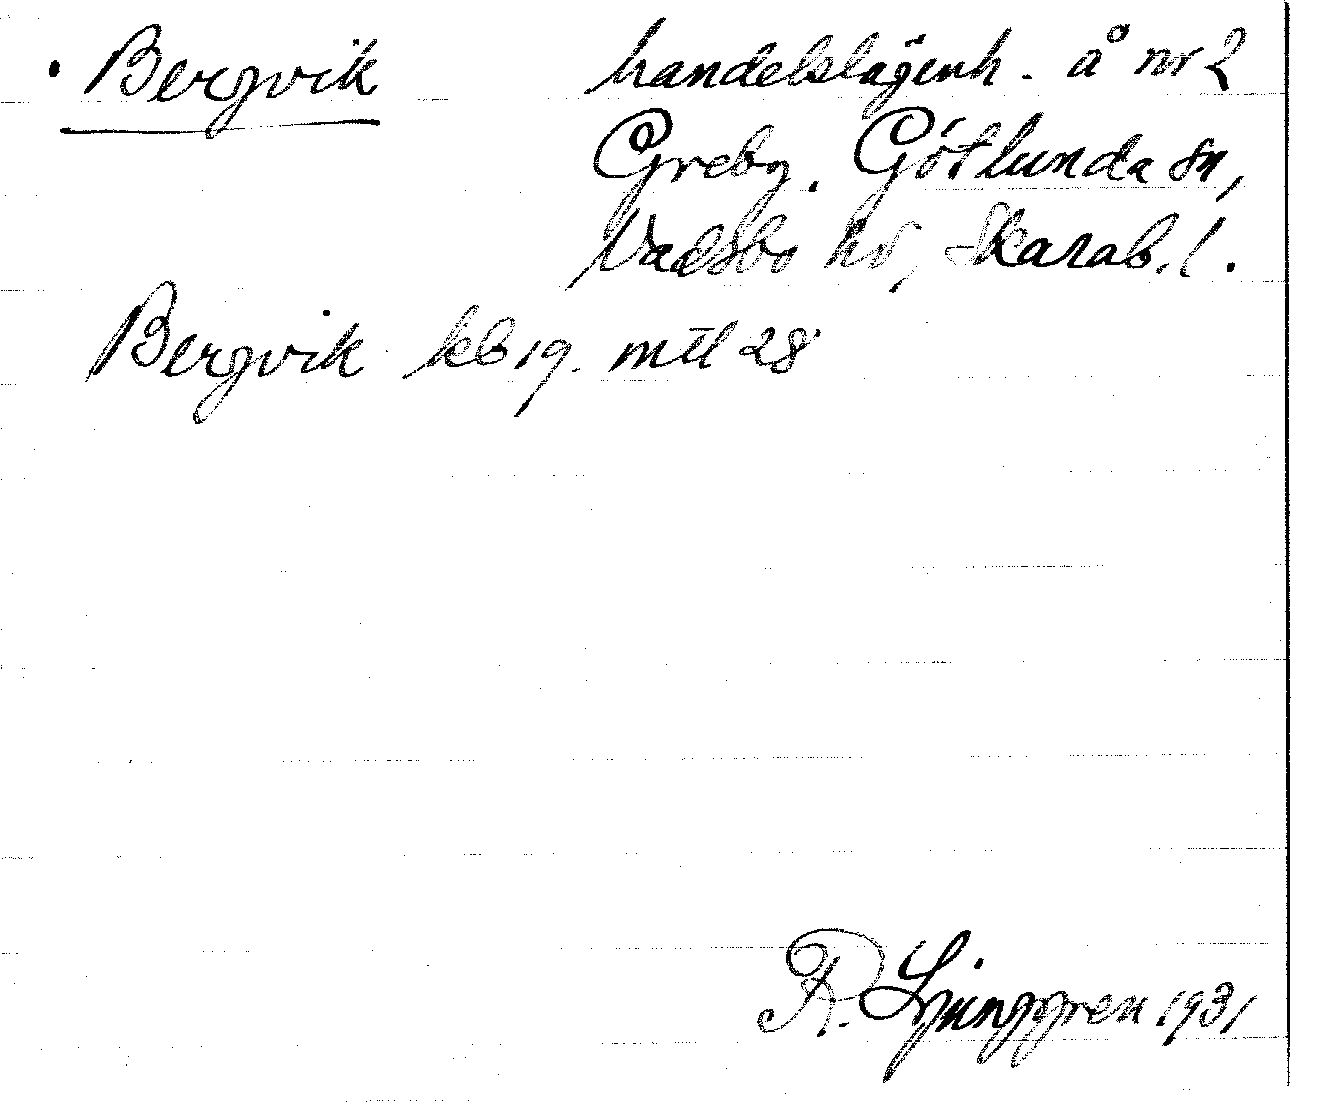 Bergvik handelslägenh. å nr 2
Greby. Götlunda sn,
Vadsbo hd, Skarab. l.
Bergvik kb 19. mtl 28
R. Ljunggren 1931